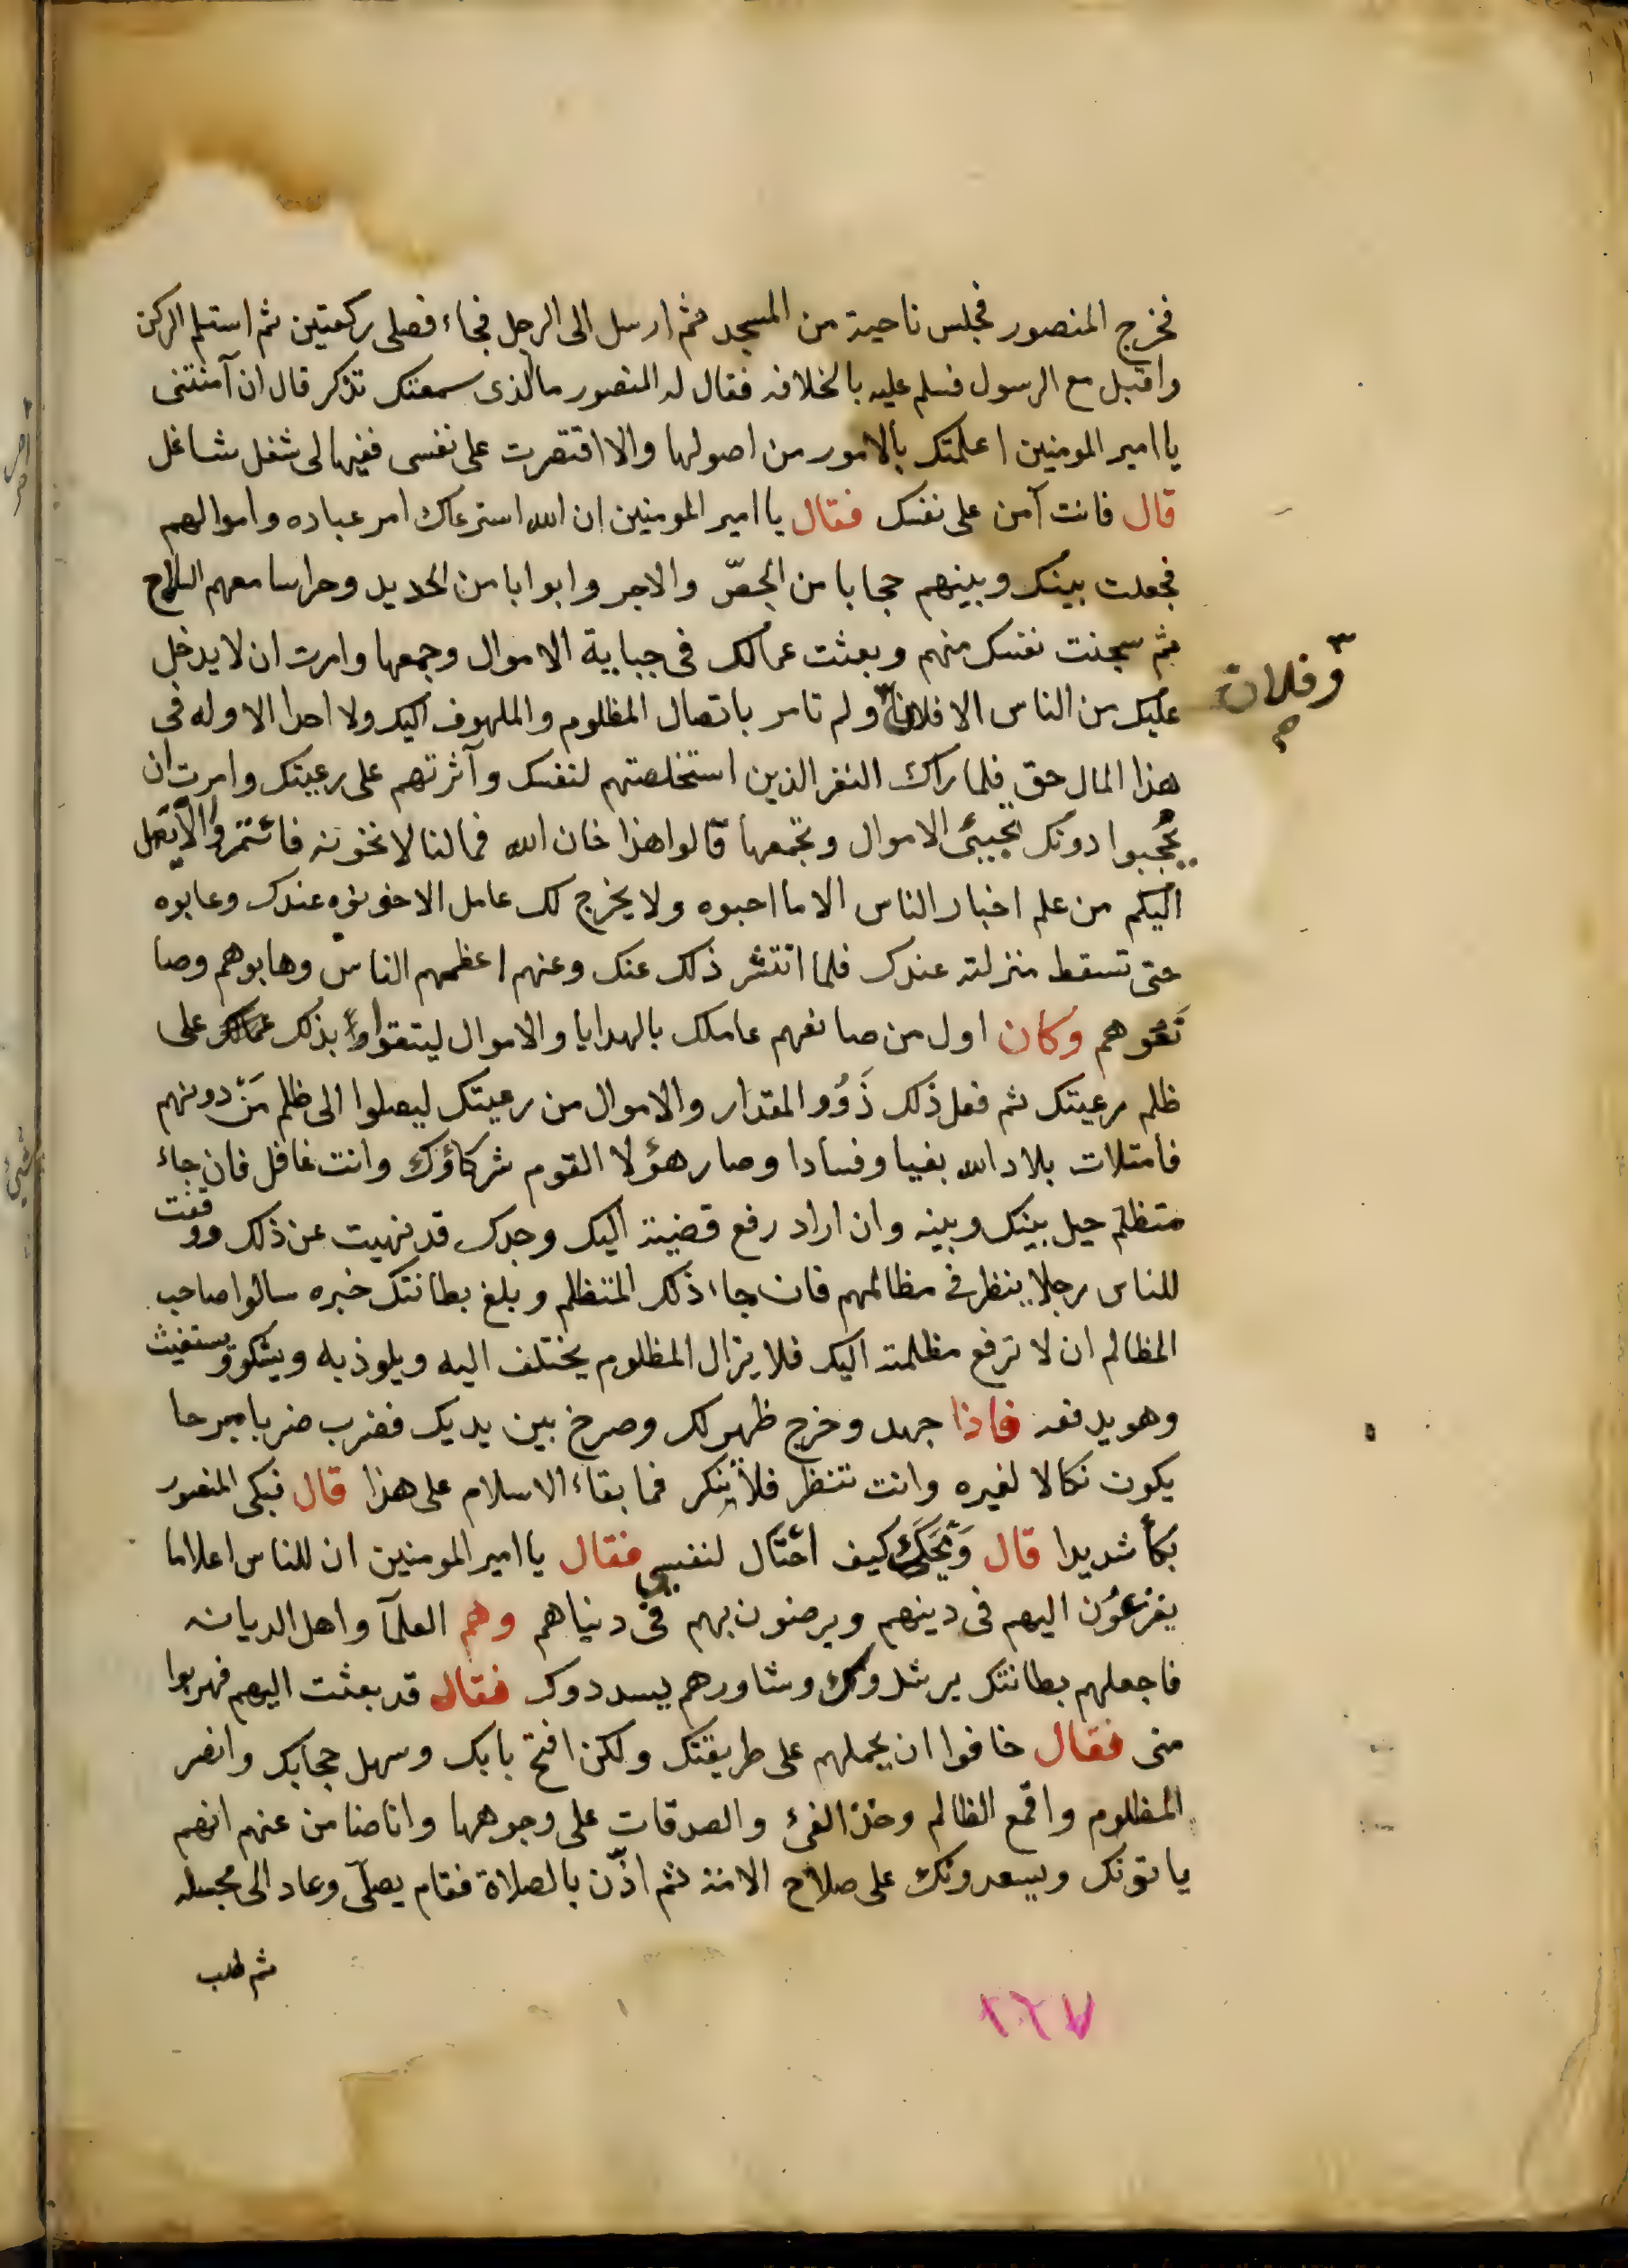 فخرج المنصور فجلس ناحية من المسجد ثم ارسل الى الرجل فجاء فصلى ركعتين ثم استلم الركن
واقبل مع الرسول فسلم عليه بالخلافه فقال له المنصور ما لذى سمعتك تذكر قال ان آمنتنى
يا امير المومنين اعلمتك بالامور من اصولها والا اقتصرت على نفسى ففيها لى شغل شاغل
قال فانت آمن على نفسك فقال يا امير المومنين ان الله استرعاك امر عباده واموالهم
فجعلت بينك وبينهم حجابا من الجصّ والاجر وابوابا من الحديد وحراسا معهم السلاح
ثم سجنت نفسك منهم وبعثت عمالك فى جباية الاموال وجمعها وامرت ان لا يدخل
عليك من الناس الا فلان ولم تامر باتصال المظلوم والملهوف اليك ولا احدا الا وله فى
وفلان
صح
هذا المال حق فلما راك النفر الذين استخلصتهم لنفسك وآثرتهم على رعيتك وامرت ان
يُحجبوا دونك تجبئ الاموال وتجمعها قالوا هذا خان الله فما لنا لا نخونه فائتمروا الا يصل
اليكم من علم اخبار الناس الا ما احبوه ولا يخرج لك عامل الا خونوه عندك وعابوه
حتى تسقط منزلته عندك فلما انتشر ذلك عنك وعنهم اعظمهم الناس وهابوهم وصا
نَعُوهم وكان اول من صانعهم عاملك بالهدايا والاموال ليتقووا بذلك على
ظلم رعيتك ثم فعل ذلك ذَوُو المقدار والاموال من رعيتك ليصلوا الى ظلم مَنْ دونهم
فامتلات بلاد الله بغيا وفسادا وصار هؤلا القوم شركاؤك وانت غافل فان جاء
متظلم حيل بينك وبينه وان اراد رفع قضيته اليك وجدك قد نهيت عن ذلك ووقفت
للناس رجلا ينظر فى مظالمهم فان جاء ذلك المتظلم وبلغ بطانتك خبره سالوا صاحب
المظالم ان لا ترفع مظلمته اليك فلا يزال المظلوم يختلف اليه ويلوذ به ويشكو ويستغيث
وهو يدفعه فاذا جهد وخرج ظهر لك وصرخ بين يديك فضرب ضربا مبرحا
يكون نكالا لغيره وانت تنظر فلا تنكر فما بقاء الاسلام على هذا قال فبكى المنصور
بكاً شديدا قال وَيْحَكَ كيف احْتَال لنفسى فقال يا امير المومنين ان للناس اعلاما
يفزعُون اليهم فى دينهم ويرضون بهم فى دنياهم وهم العلمآ واهل الديانه
فاجعلهم بطانتك يرشدوك وشاورهم يسددوك فقال قد بعثت اليهم فهربوا
منى فقال خافوا ان يحملهم على طريقتك ولكن افتح بابك وسهل حجابك وانصر
المظلوم واقمع الظالم وخذ الفئ والصدقات على وجوهها وانا ضامن عنهم انهم
ياتونك ويسعدونك على صلاح الامة ثم اذّن بالصلاة فقام يصلّى وعاد الى مجلسه
ثم طلب
١٦٧